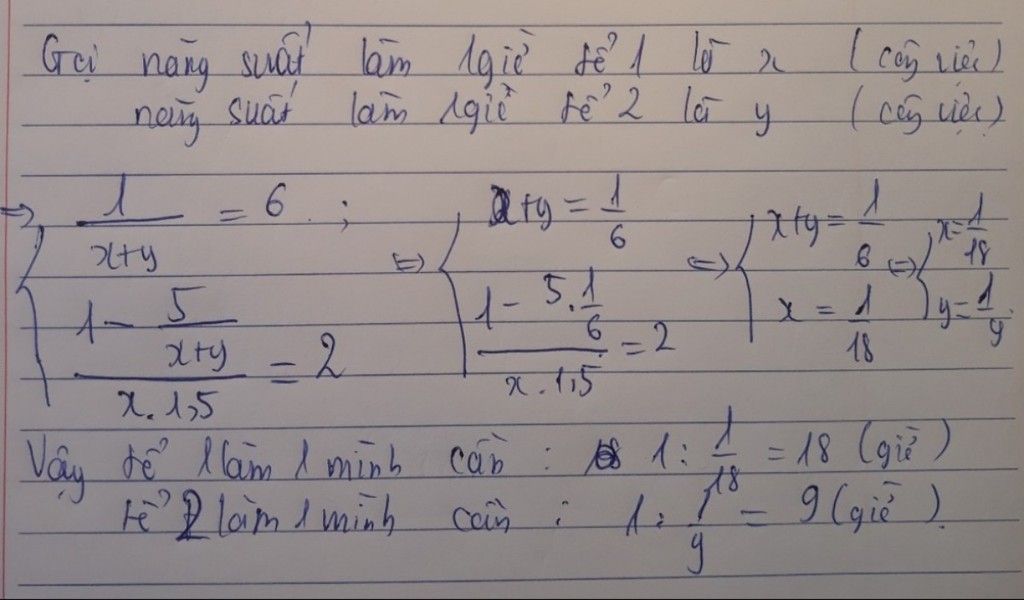 Gọi năng suất làm 1 giờ tổ 1 là x (công việc)
năng suất làm 1 giờ tổ 2 là y (công việc)
=> { 1/(x+y) = 6 ; <=> { x+y = 1/6 <=> { x+y = 1/6 <=> { x = 1/18
(1 - 5/(x+y))/(x.1,5) = 2 (1 - 5.1/6)/(x.1,5) = 2 x = 1/18 y = 1/9
Vậy tổ 1 làm 1 mình cần : 1 : 1/18 = 18 (giờ)
tổ 2 làm 1 mình cần : 1 : 1/9 = 9 (giờ).